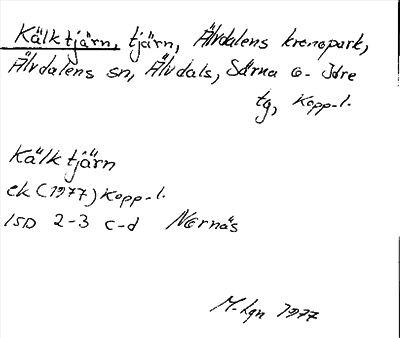 Kälktjärn, tjärn, Älvdalens kronopark,
Älvdalens sn, Älvdals, Särna o. Idre
tg, Kopp. l.
Kälktjärn
ek (1977) Kopp. l.
15D 2-3 c-d Nornäs
M-lgn 1977